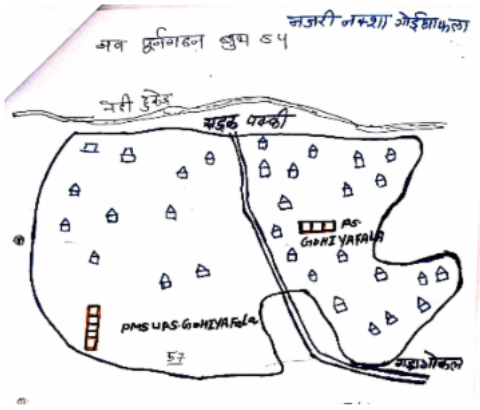 नजरी नक्शा गोईयाकला
नव पूर्नगठन बुथ 54
नदी डुमेर
सड़क पक्की
PS.
GOHIYAFALA
PMSUPS.GOHIYAFala
57